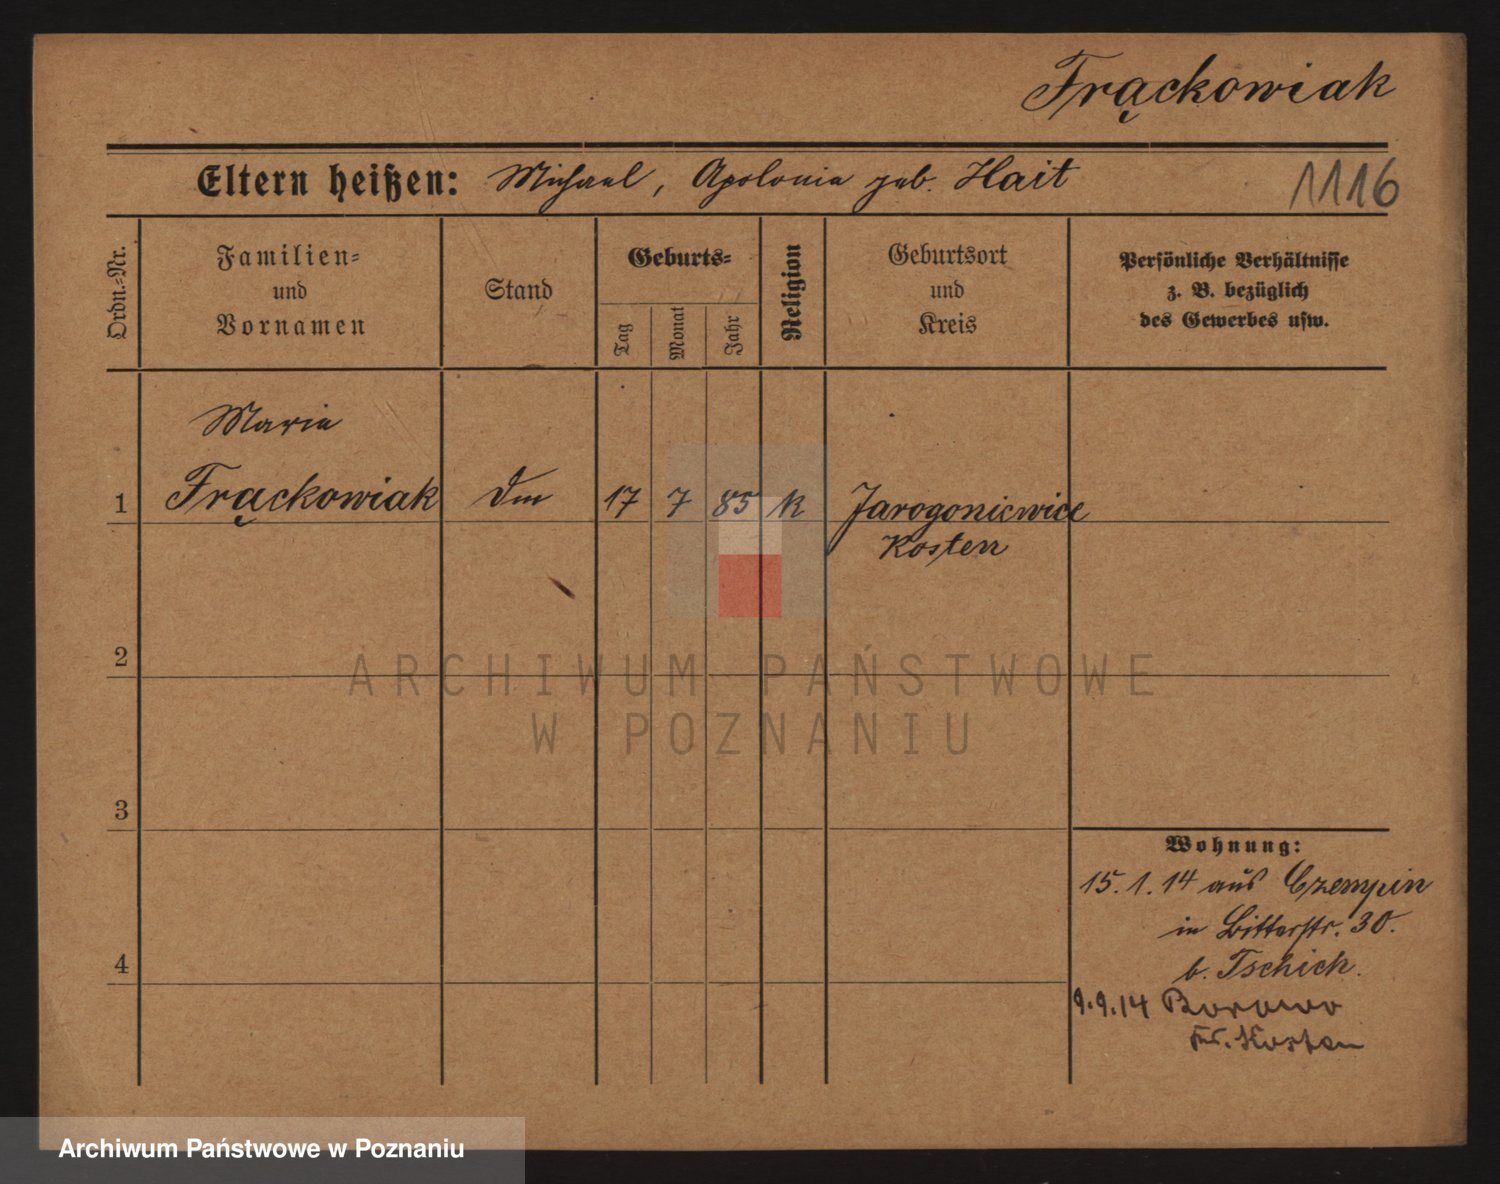 Frąckowiak
Eltern heißen: Michael, Apolonia geb. Hait
1116
Ordn.-Nr.
Familien-
und
Vornamen
Stand
Geburts-
Tag
Monat
Jahr
Religion
Geburtsort
und
Kreis
Persönliche Verhältnisse
z. B. bezüglich
des Gewerbes usw.
Maria
1 Frąckowiak Dm 17 7 85 k Jarogoniewice
Kosten
2
ARCHIWUM PAŃSTWOWE
W POZNANIU
3
Wohnung:
15. 1. 14 aus Czempin
in Bitterstr. 30.
b. Tschich.
4
9.9.14 Borowo
Kr. Kosten
Archiwum Państwowe w Poznaniu